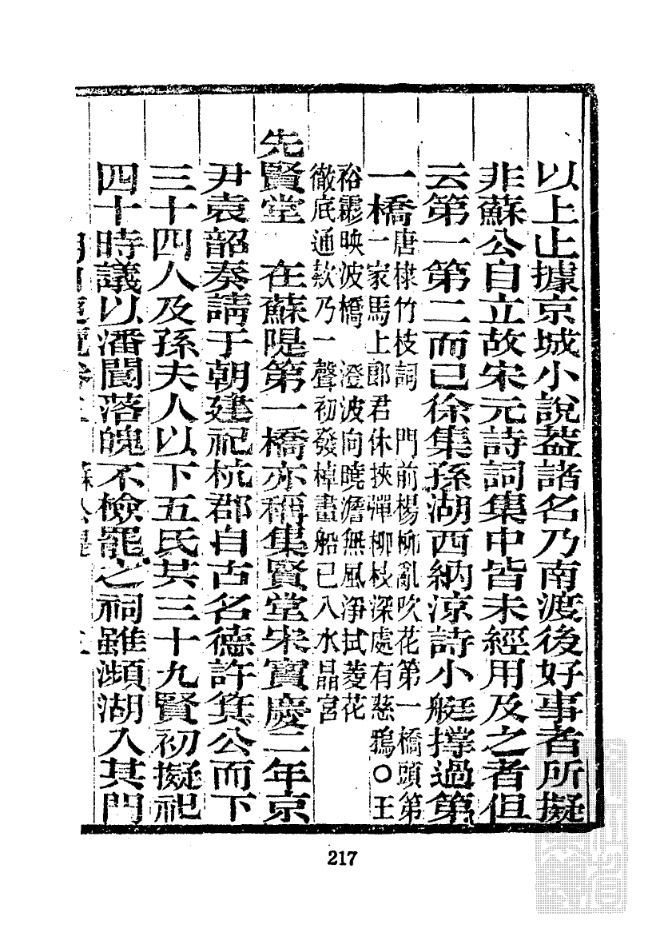 以上止據京城小說葢諸名乃南渡後好事者所擬
非蘇公自立故宋元詩詞集中皆未經用及之者但
云第一第二而已徐集孫湖西納涼詩小艇撐過第
一橋
唐棣竹枝詞 門前楊柳亂吹花第一橋頭第
一家馬上郎君休挾彈柳枝深處有慈鴉○王
裕霽映波橋 澄波向曉澹無風净拭菱花
徹底通欸乃一聲初發棹畫船已入水晶宮
先賢堂 在蘇隄第一橋亦稱集賢堂宋寶慶二年京
尹袁韶奏請于朝建祀杭郡自古名德許箕公而下
三十四人及孫夫人以下五氏其三十九賢初擬祀
四十時議以潘閬落魄不檢罷之祠雖瀕湖入其門
217